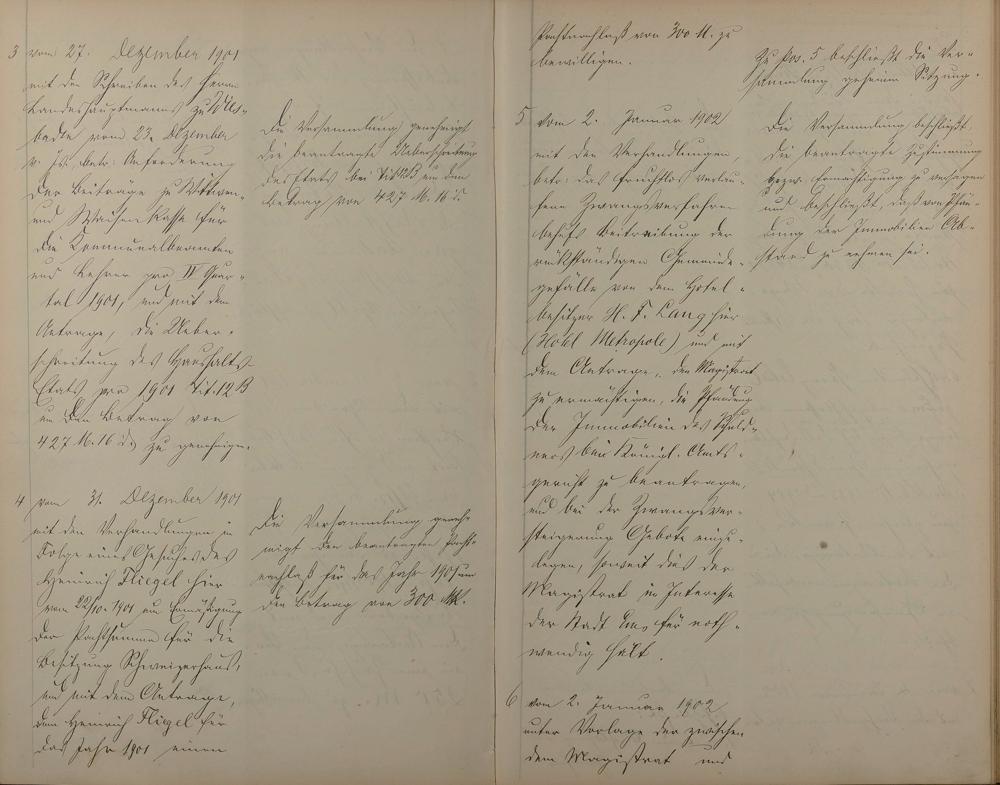 3 vom 27. Dezember 1901
mit dem Schreiben des Herrn
Landeshauptmanns zu Wies-
baden vom 23. Dezember
v. Js. betr. Anforderung
der Beiträge zu Wittwen-
und Waisen Kasse für
die Kommunalbeamten
und Lehrer pro IV Quar-
tal 1901, und mit dem
Antrage, die Ueber-
schreitung des Haushalts-
Etats pro 1901 Tit. 12 B
um den Betrag von
427 M. 16 d. zu genehmigen.
Die Versammlung genehmigt
die beantragte Ueberschreitung
des Etats bei Tit. 12 B um den
Betrag von 427 M. 16 d.
4 vom 31. Dezember 1901
mit den Verhandlungen in
Folge eines Gesuches des
Heinrich Fliegel hier
vom 22/10. 1901 um Ermäßigung
der Pachtsumme für die
Besitzung Schweizerhaus,
und mit dem Antrage,
dem Heinrich Fliegel für
das Jahr 1901 einen
Die Versammlung geneh-
migt den beantragten Pacht-
nachlaß für das Jahr 1901 um
den Betrag von 300 Mk.
Pachtnachlaß von 300 M. zu
bewilligen.
Zu Pos. 5 beschließt die Ver-
sammlung geheime Sitzung.
5 vom 2. Januar 1902
mit den Verhandlungen,
betr. das fruchtlos verlau-
fene Zwangsverfahren
behufs Beitreibung der
rückständigen Gemeinde-
gefälle von dem Hotel-
besitzer H. F. Lang hier
(Hotel Metropole) und mit
dem Antrage, den Magistrat
zu ermächtigen, die Pfändung
der Immobilien des Schuld-
ners bei Königl. Amts-
gericht zu beantragen,
und bei der Zwangsver-
steigerung Gebote einzu-
legen, soweit dies der
Magistrat im Interesse
der Stadt Ems für noth-
wendig hält.
Die Versammlung beschließt,
die beantragte Zustimmung
bezw. Ermächtigung zu versagen
und beschließt, daß von Pfän-
dung der Immobilien Ab-
stand zu nehmen sei.
6 vom 2. Januar 1902
unter Vorlage der zwischen
dem Magistrat und